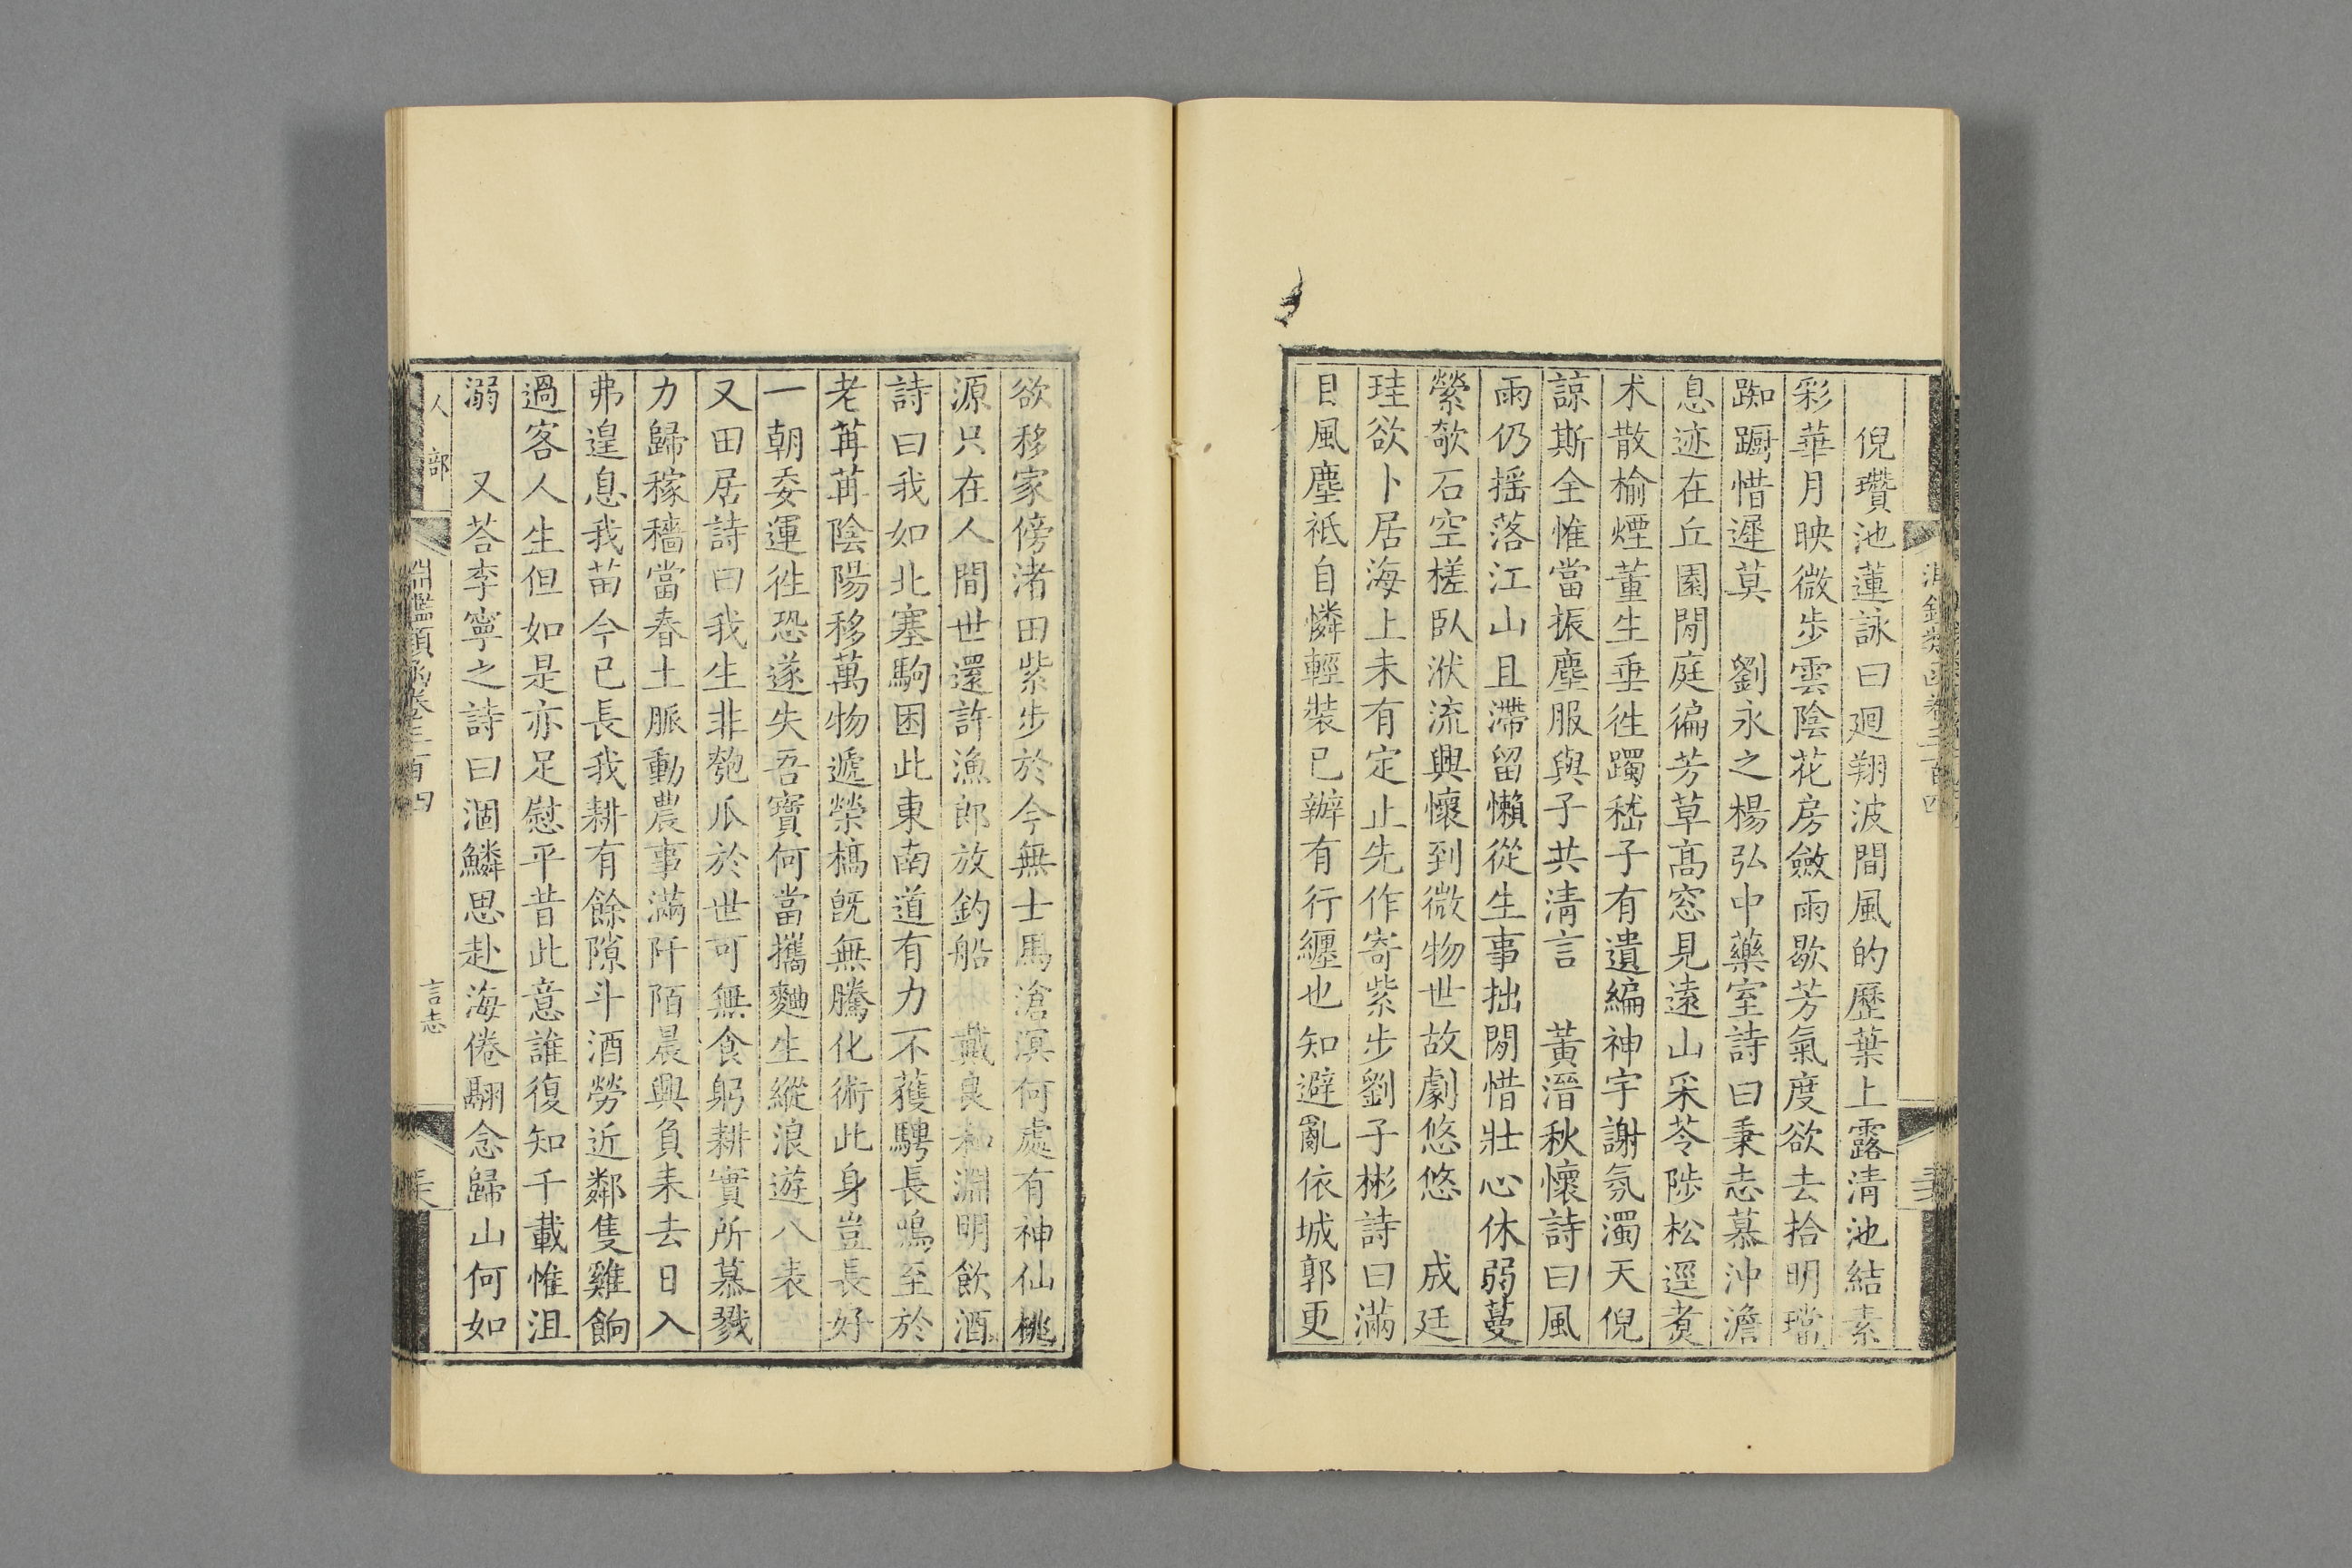 倪瓚池蓮詠曰迴翔波間風的歷葉上露清池結素
彩華月映微步雲陰花房斂雨歇芳氣度欲去拾明璫
踟躕惜遲莫　劉永之楊弘中藥室詩曰秉志慕沖澹
息迹在丘園閒庭徧芳草高窓見遠山采苓陟松逕煑
术散榆煙董生垂徃躅嵇子有遺編神宇謝氛濁天倪
諒斯全惟當振塵服與子共清言　黃溍秋懷詩曰風
雨仍揺落江山且滯留懶從生事拙閒惜壯心休弱蔓
縈欹石空槎臥洑流興懷到微物世故劇悠悠　成廷
珪欲卜居海上未有定止先作寄紫步劉子彬詩曰滿
目風塵祇自憐輕裝已辦有行纒也知避亂依城郭更
欲移家傍渚田紫步於今無士馬滄溟何處有神仙桃
源只在人間世還許漁郎放釣船　戴良和淵明飲酒
詩曰我如北塞駒困此東南道有力不獲騁長鳴至於
老苒苒陰陽移萬物遞榮槁旣無騰化術此身豈長好
一朝委運徃恐遂失吾寶何當攜麯生縱浪遊八表
又田居詩曰我生非匏瓜於世可無食躬耕實所慕戮
力歸稼穡當春土脈動農事滿阡陌晨興負耒去日入
弗遑息我苗今已長我耕有餘隙斗酒勞近鄰隻雞餉
過客人生但如是亦足慰平昔此意誰復知千載惟沮
溺　又荅李寧之詩曰涸鱗思赴海倦翮念歸山何如
人部
淵鑑類函卷三百四
言志